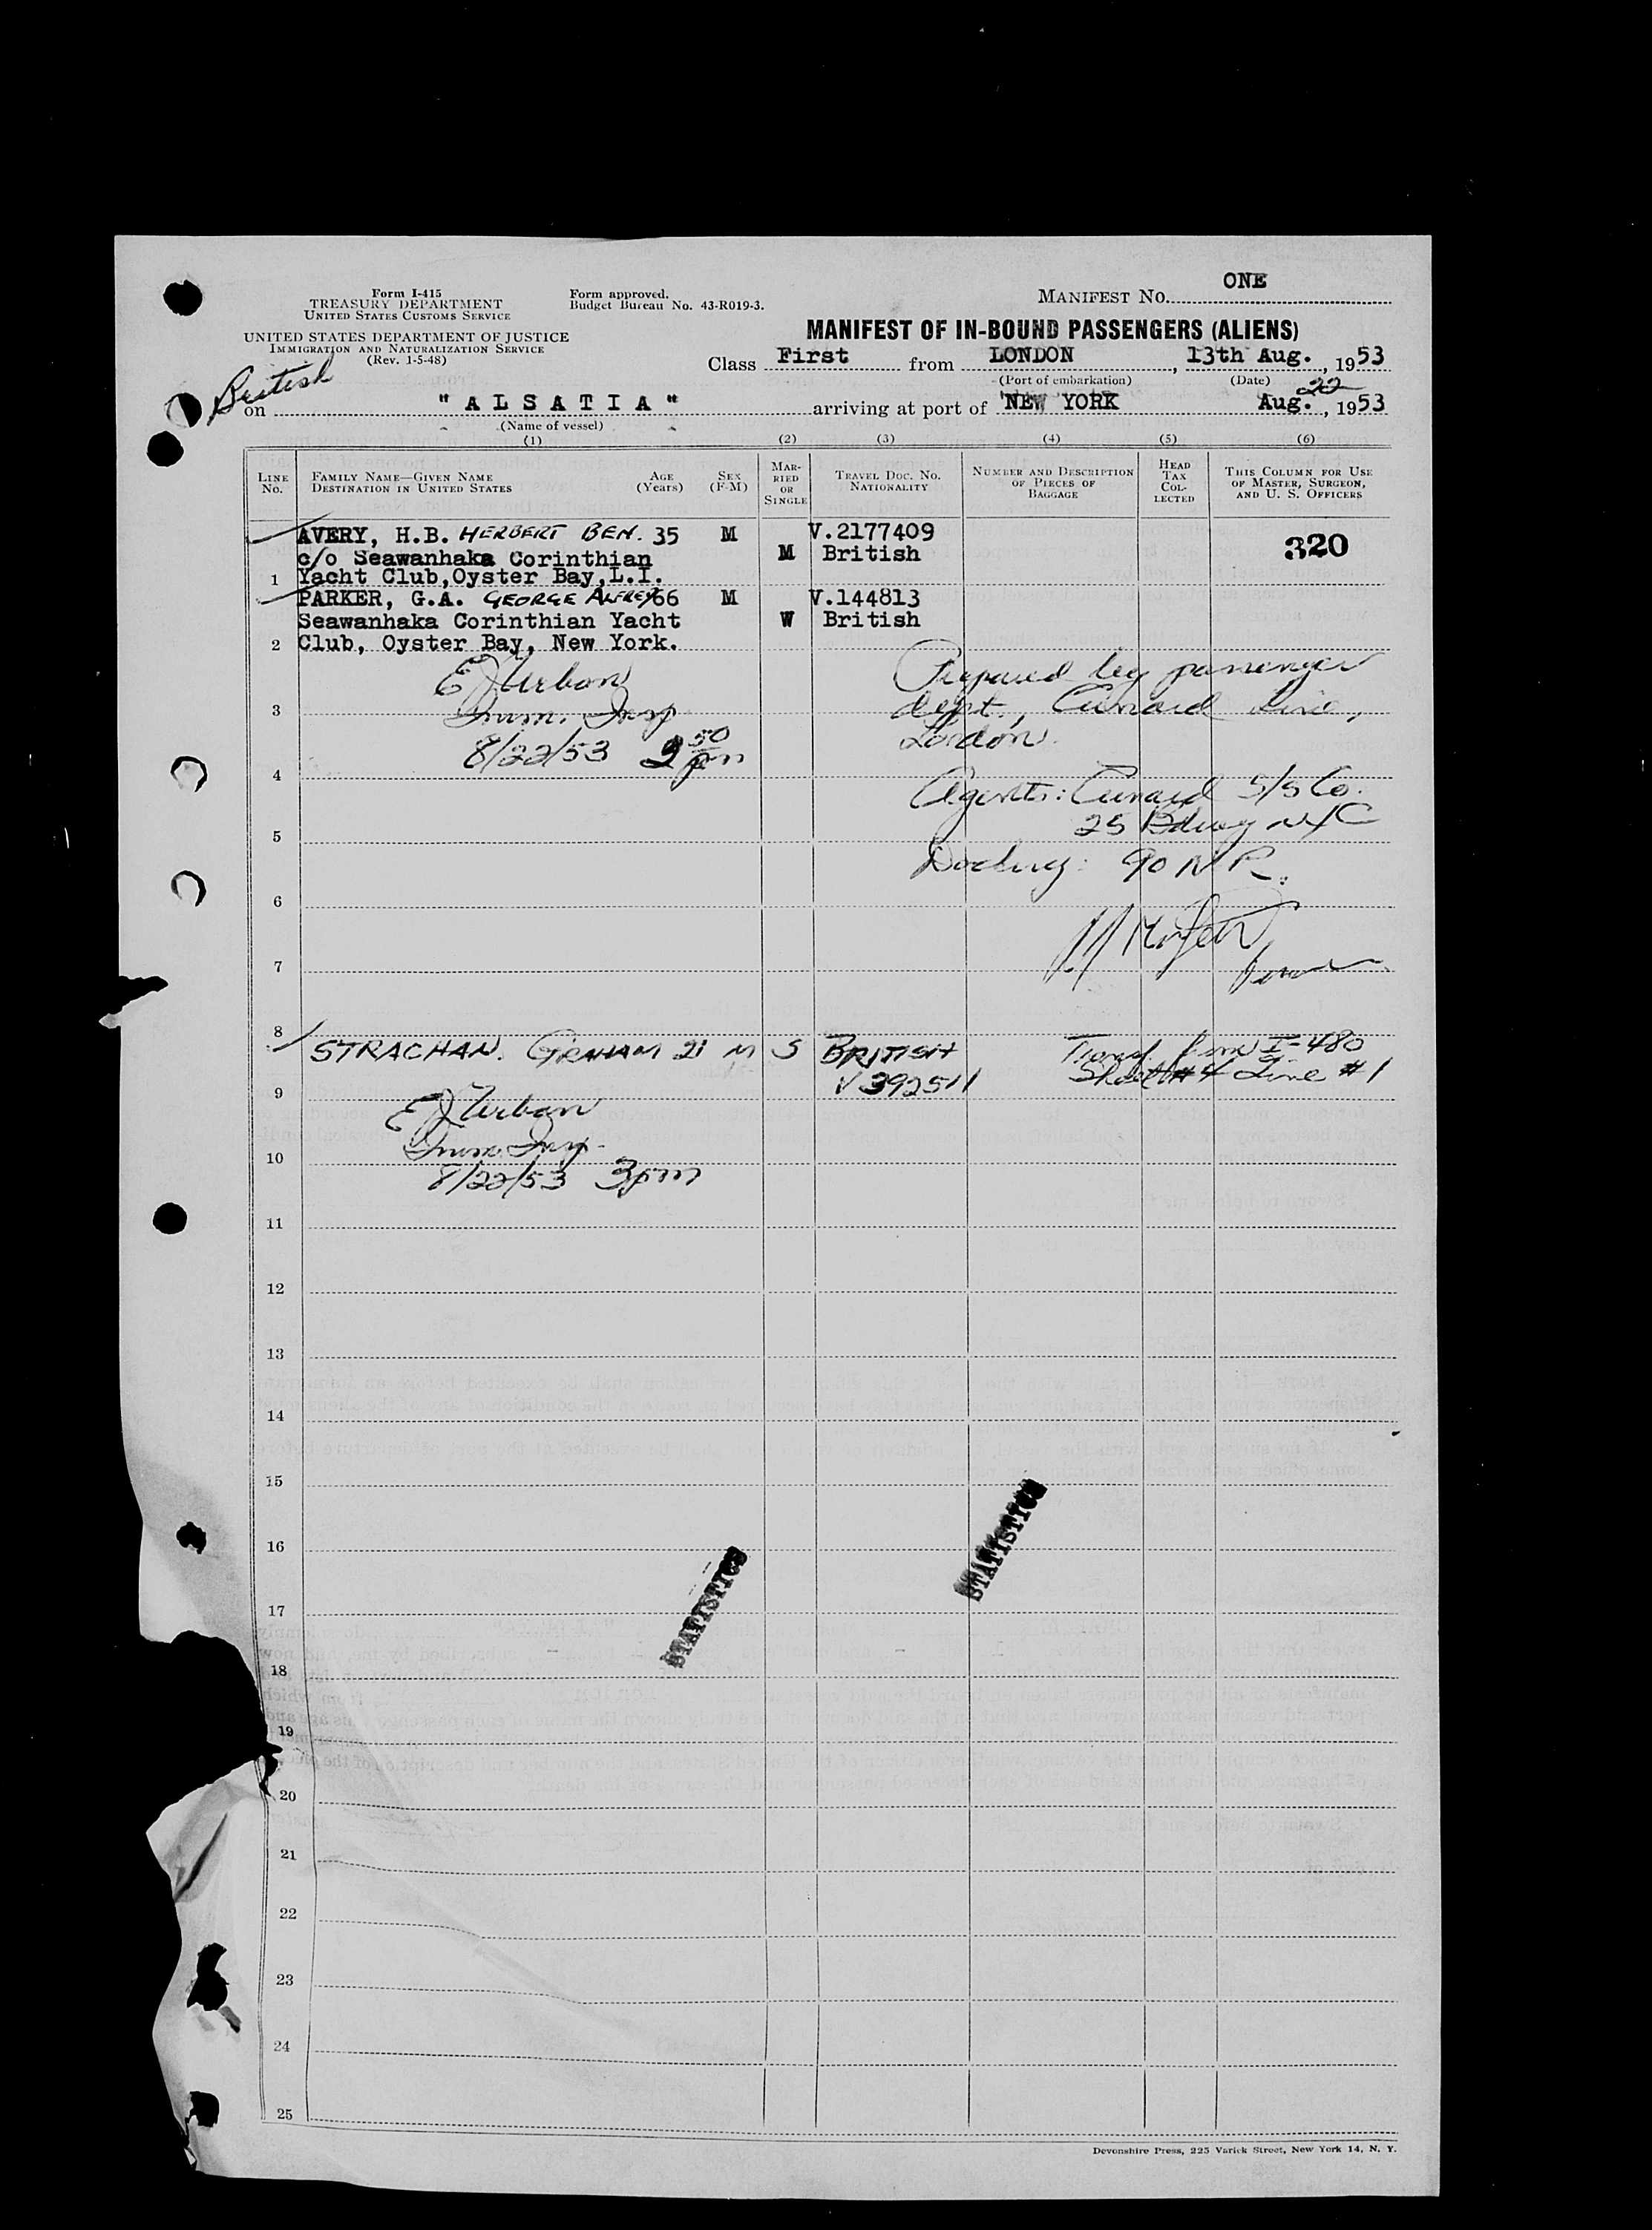 Form I-415
TREASURY DEPARTMENT
UNITED STATES CUSTOMS SERVICE
UNITED STATES DEPARTMENT OF JUSTICE
IMMIGRATION AND NATURALIZATION SERVICE
(Rev. 1-5-48)
Form approved.
Budget Bureau No. 43-R019-3.
MANIFEST NO. ONE
MANIFEST OF IN-BOUND PASSENGERS (ALIENS)
Class First from LONDON, 13th Aug., 1953
(Port of embarkation) (Date)
British
on "ALSATIA" arriving at port of NEW YORK Aug. 22, 1953
(Name of vessel)
(1) (2) (3) (4) (5) (6)
LINE NO. FAMILY NAME—GIVEN NAME DESTINATION IN UNITED STATES AGE (Years) SEX (F-M) MARRIED OR SINGLE TRAVEL DOC. NO. NATIONALITY NUMBER AND DESCRIPTION OF PIECES OF BAGGAGE HEAD TAX COLLECTED THIS COLUMN FOR USE OF MASTER, SURGEON, AND U. S. OFFICERS
AVERY, H.B. HERBERT BEN. 35 M V.2177409
c/o Seawanhaka Corinthian M British 320
1 Yacht Club, Oyster Bay, L.I.
PARKER, G.A. GEORGE ALFRED 66 M V.144813
Seawanhaka Corinthian Yacht W British
2 Club, Oyster Bay, New York.
E J Urban
Imm. Insp
8/22/53 2 50 pm
Prepared by passenger
dept., Cunard Line,
London.
Agents: Cunard S/S Co.
25 Bdway NYC
Docking: 90 N R.
3
4
5
6
7
8
STRACHAN. GRAHAM 21 M S BRITISH
V 392511
Transf. from I-480
Sheet #4 Line #1
9
E J Urban
Imm. Insp.
10
8/22/53 3pm
11
12
13
14
15
STATISTICS
16
STATISTICS
17
18
19
20
21
22
23
24
25
Devonshire Press, 225 Varick Street, New York 14, N. Y.